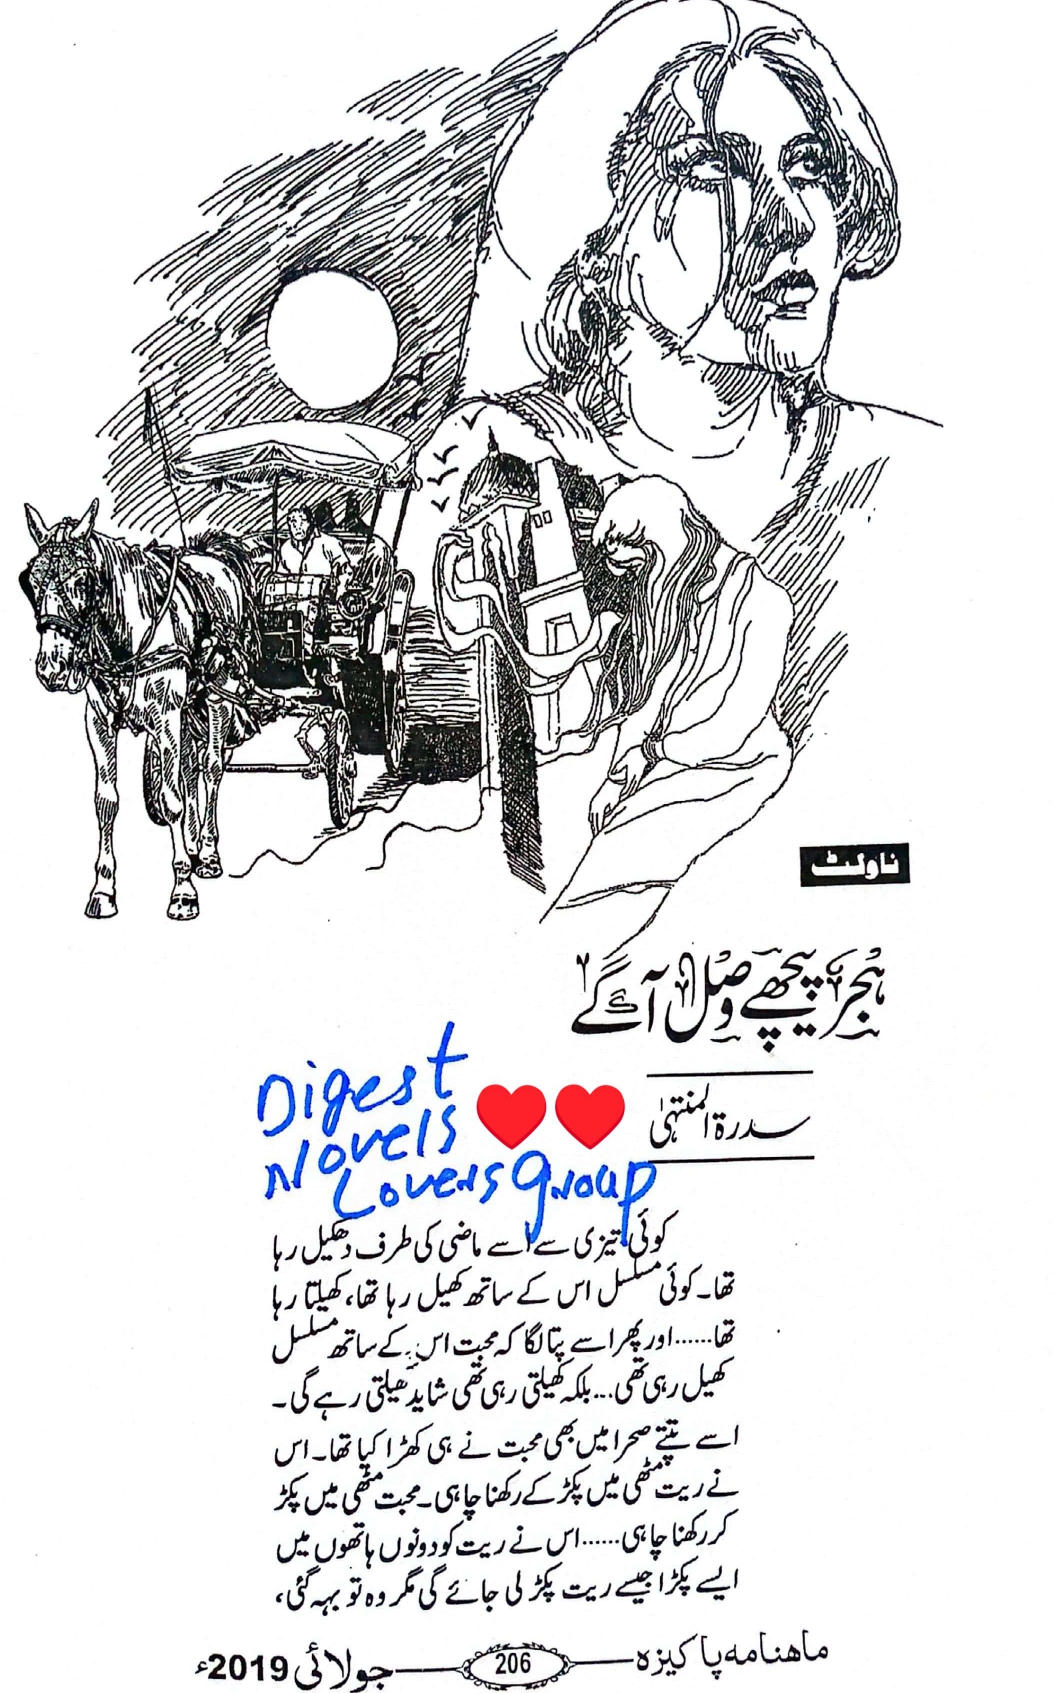 ناولٹ
ہجر پیچھے وصل آگے
سدرۃ المنتہیٰ
Digest
Novels
Lovers Group
کوئی تیزی سے اسے ماضی کی طرف دھکیل رہا
تھا۔ کوئی مسلسل اس کے ساتھ کھیل رہا تھا، کھیلتا رہا
تھا...... اور پھر اسے پتا لگا کہ محبت اس کے ساتھ مسلسل
کھیل رہی تھی... بلکہ کھیلتی رہی تھی شاید کھیلتی رہے گی۔
اسے تپتے صحرا میں بھی محبت نے ہی کھڑا کیا تھا۔ اس
نے ریت مٹھی میں پکڑ کے رکھنا چاہی۔ محبت مٹھی میں پکڑ
کر رکھنا چاہی...... اس نے ریت کو دونوں ہاتھوں میں
ایسے پکڑا جیسے ریت پکڑ لی جائے گی مگر وہ تو بہہ گئی،
ماهنامه پاکیزہ 206 جولائی 2019ء